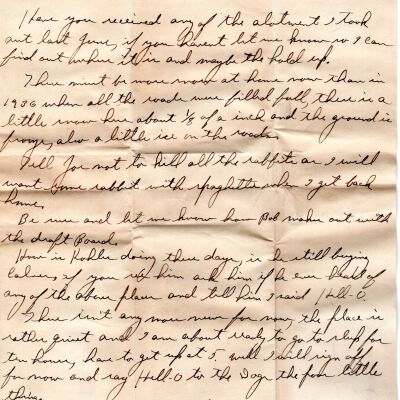 Have you received any of the alotment I took
out last June, if you havent let me know so I can
find out where it is and maybe the hold up.
There must be more snow at home now than in
1936 when all the roads were filled full, there is a
little snow here about 1/8 of a inch and the ground is
froze, also a little ice on the roads.
Tell for not to kill all the rabbits as I will
want some rabbit with spaghetti when I get back
home.
Be sure and let me know how Bob makes out with
the draft Board.
How is Kohler doing these days, is he still buying
calves, if you see him ask him if he ever heard of
any of the above places and tell him I said Hell-O.
There isn't any more news for now, the place is
rather quiet and I am about ready to go to sleep for
ten hours, have to get up at 5, well I will sign off
for now and say Hell-O to the Dogs the poor little
things.